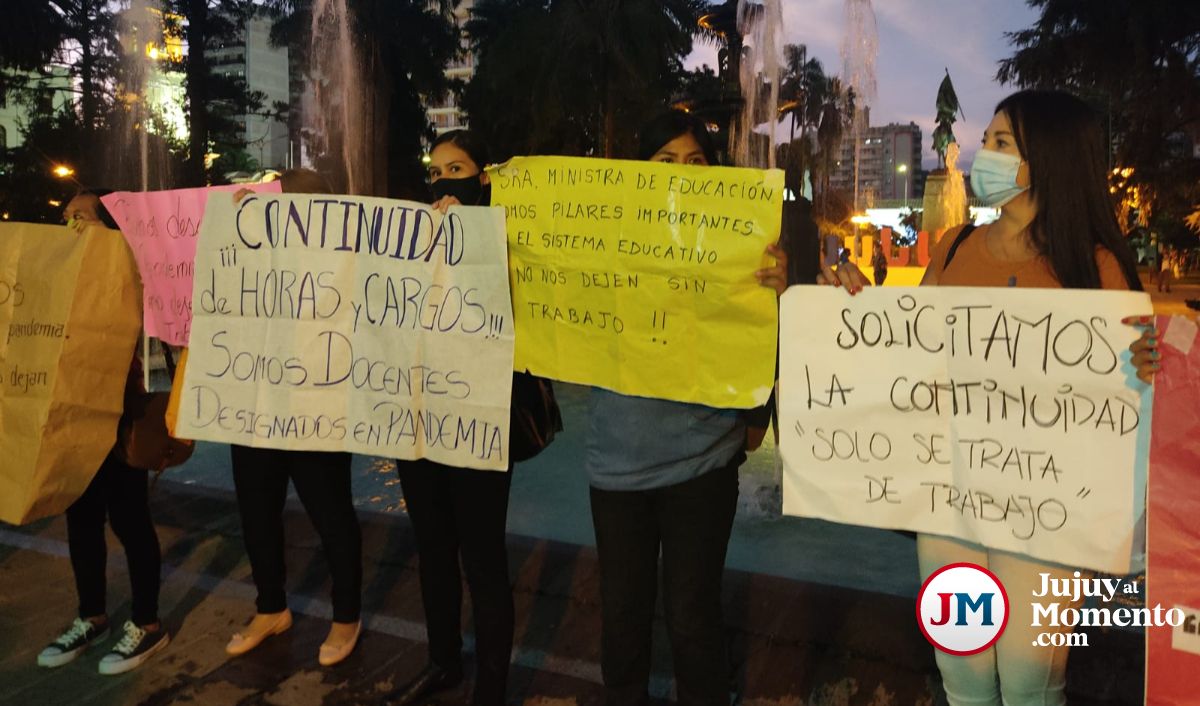 pandemia.
dejan
¡¡¡CONTINUIDAD
de HORAS y CARGOS!!!
SOMOS DOCENTES
DESIGNADOS EN PANDEMIA
SRA. MINISTRA DE EDUCACIÓN
SOMOS PILARES IMPORTANTES
EL SISTEMA EDUCATIVO
NO NOS DEJEN SIN
TRABAJO !!
SOLICITAMOS
LA CONTINUIDAD
"SOLO SE TRATA
DE TRABAJO"
JM
Jujuy al
Momento
.com